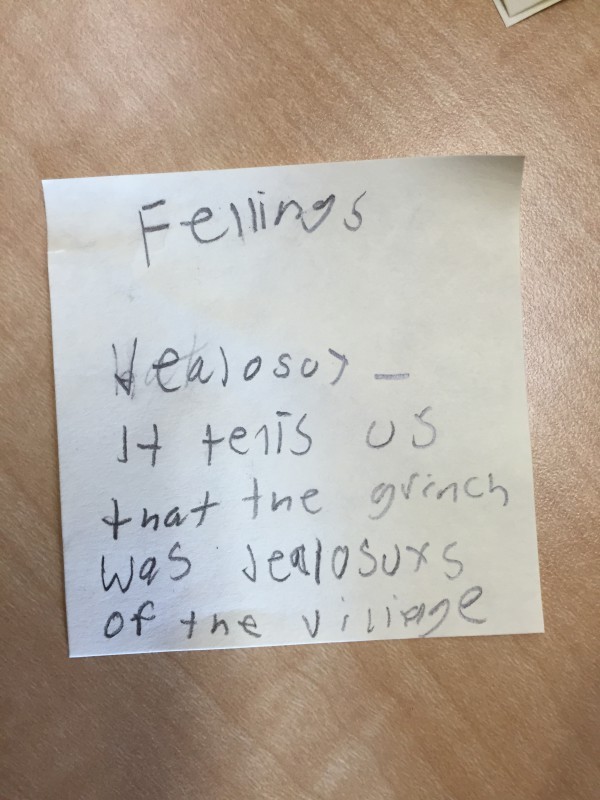 Fellings
Jealosuy –
It tells us
that the grinch
was Jealosuxs
of the village